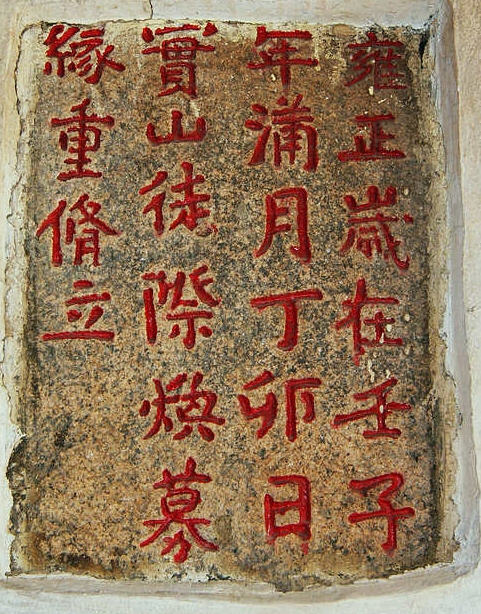 雍正歲在壬子
年蒲月丁卯日
實山徒際煥募
緣重脩立